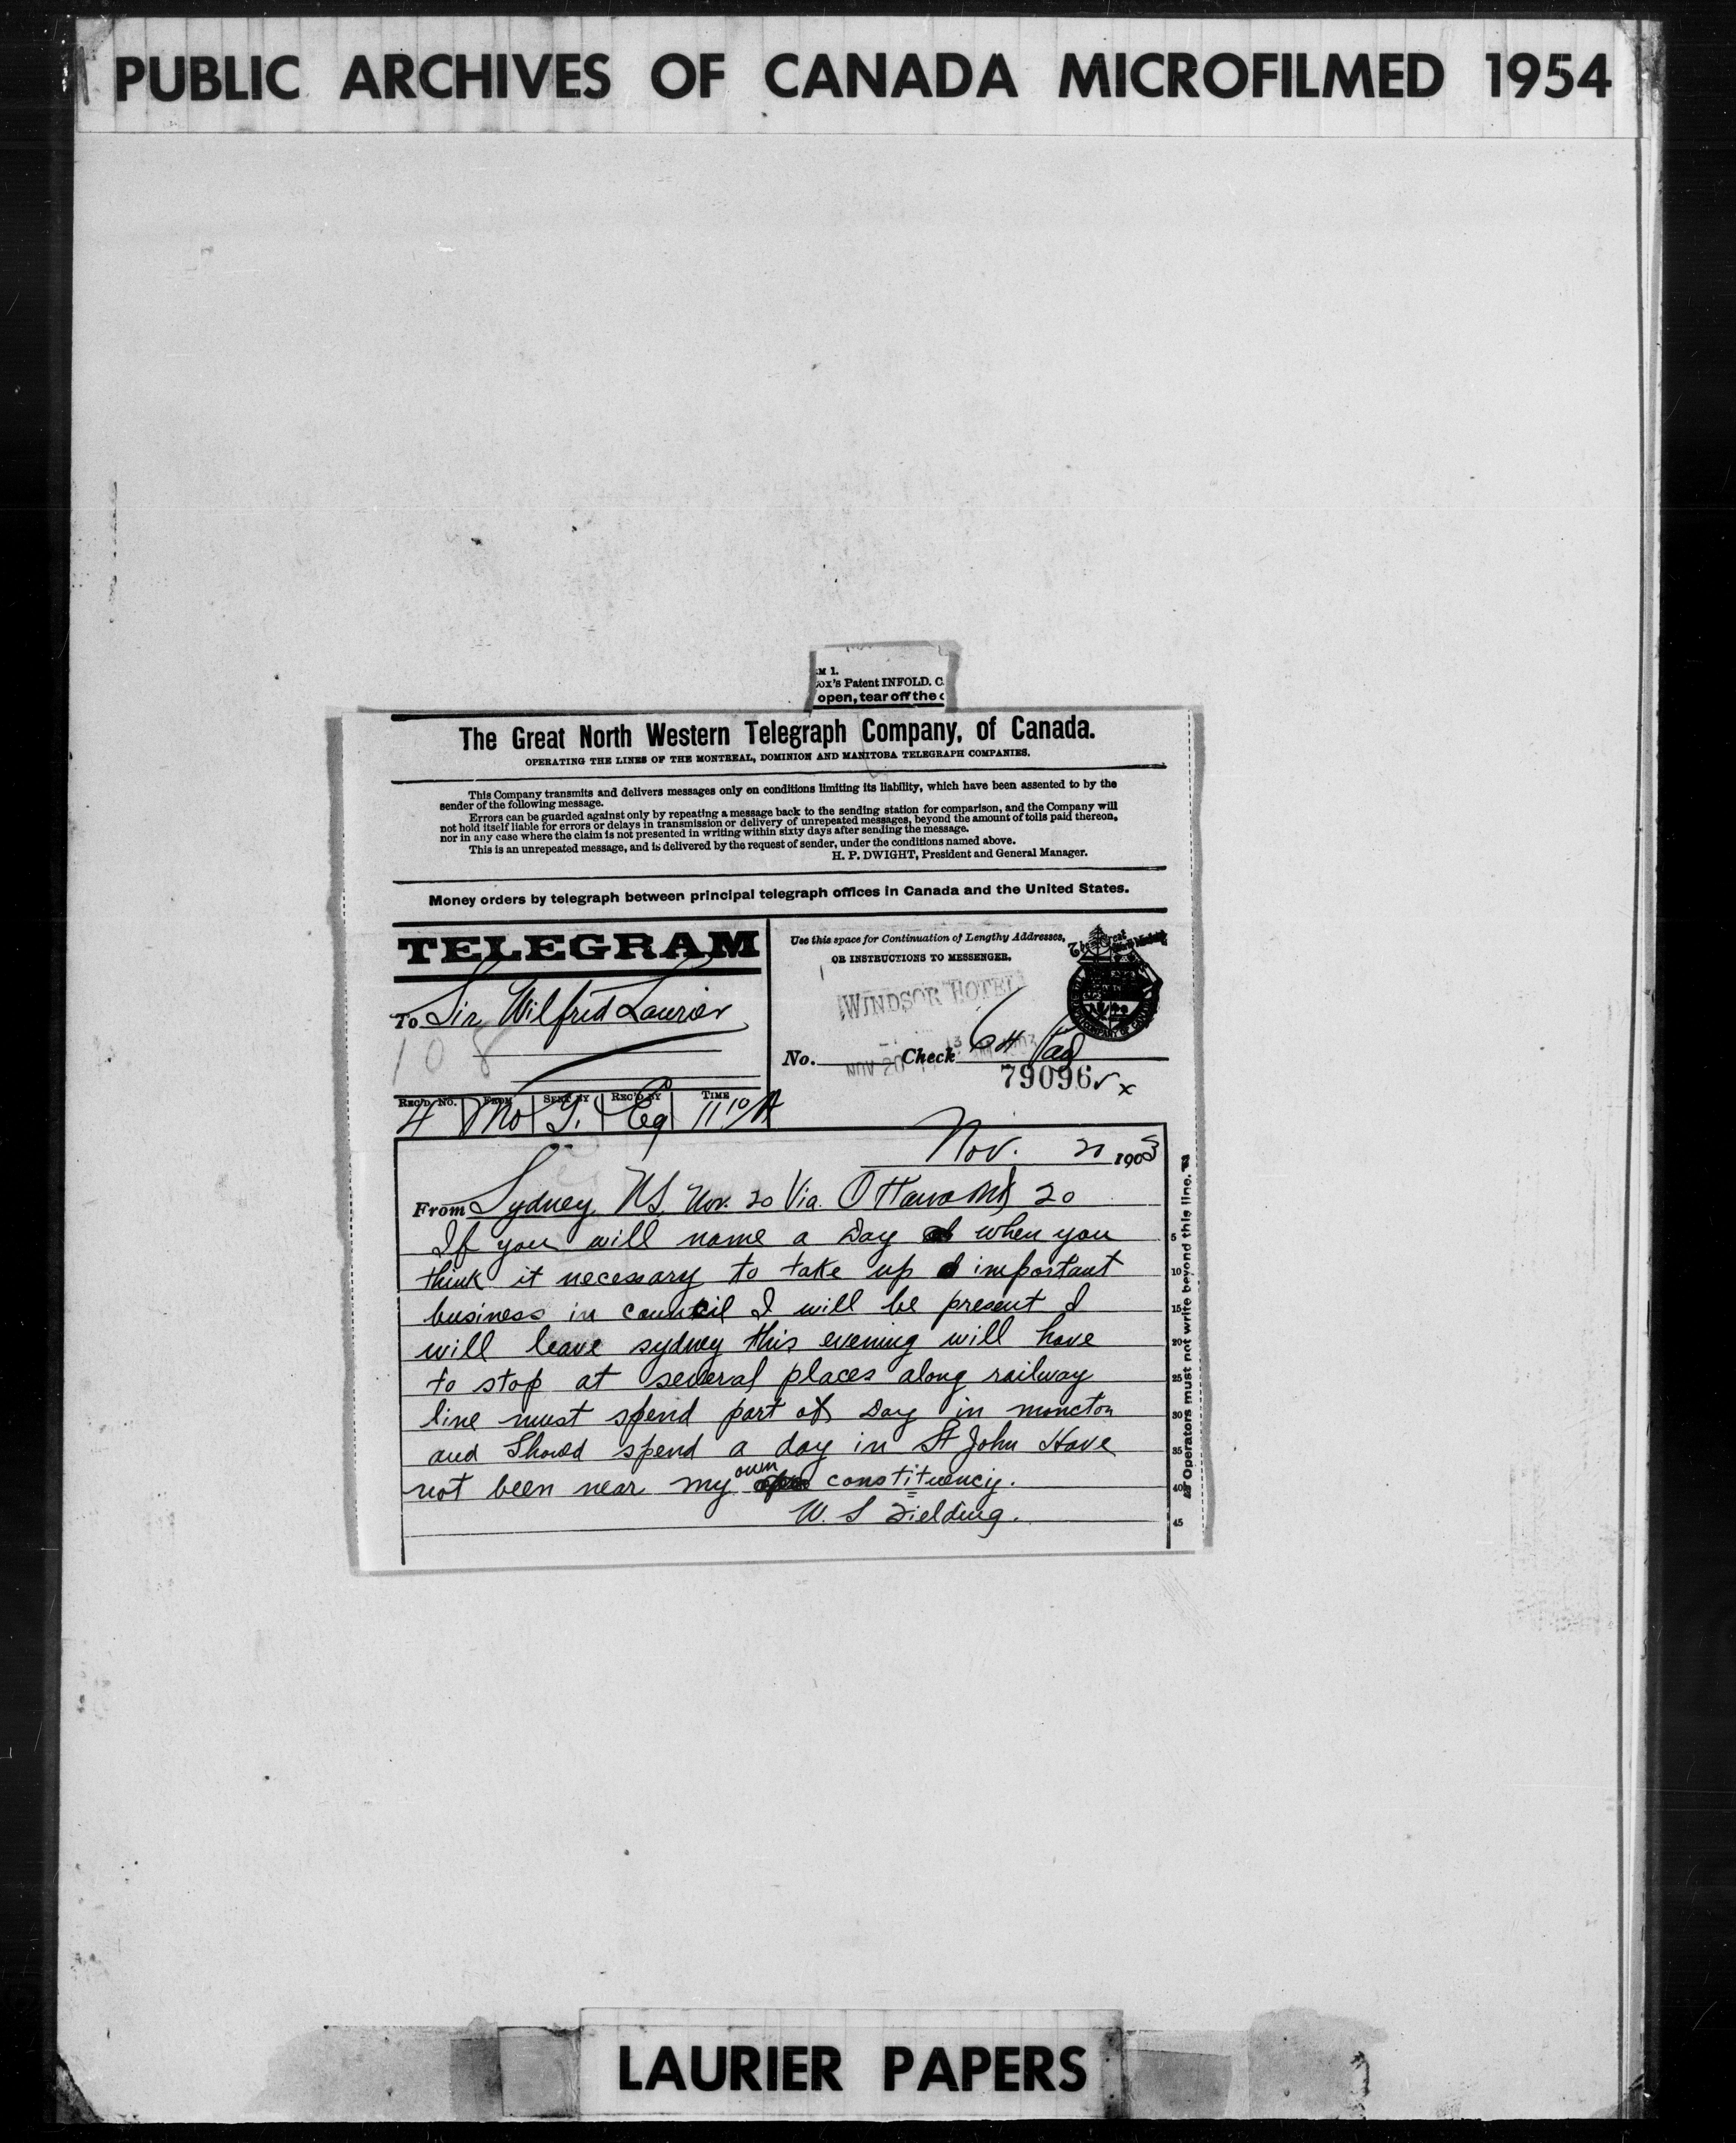 PUBLIC ARCHIVES OF CANADA MICROFILMED 1954
M 1.
ox's Patent INFOLD. C
open, tear off the
The Great North Western Telegraph Company, of Canada.
OPERATING THE LINES OF THE MONTREAL, DOMINION AND MANITOBA TELEGRAPH COMPANIES.
This Company transmits and delivers messages only on conditions limiting its liability, which have been assented to by the
sender of the following message.
Errors can be guarded against only by repeating a message back to the sending station for comparison, and the Company will
not hold itself liable for errors or delays in transmission or delivery of unrepeated messages, beyond the amount of tolls paid thereon,
nor in any case where the claim is not presented in writing within sixty days after sending the message.
This is an unrepeated message, and is delivered by the request of sender, under the conditions named above.
H. P. DWIGHT, President and General Manager.
Money orders by telegraph between principal telegraph offices in Canada and the United States.
TELEGRAM
Use this space for Continuation of Lengthy Addresses,
OR INSTRUCTIONS TO MESSENGER.
WINDSOR HOTEL
To Sir Wilfrid Laurier
108
No. Check 64
NOV 20
79096
REC'D NO. FROM SENT BY REC'D BY TIME
4 Mo G. Cq 11 10/A
Nov. 20 1903
From Sydney NS, Nov. 20 Via. Ottawa 20
If you will name a Day when you
think it necessary to take up important
business in council I will be present I
will leave sydney this evening will have
to stop at several places along railway
line must spend part of Day in moncton
and Should spend a day in St John Have
not been near my own constituency.
W. S Fielding.
Operators must not write beyond this line.
5
10
15
20
25
30
35
40
45
LAURIER PAPERS